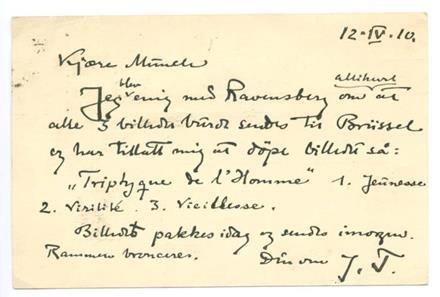 12-IV-10.
Kjære Munch
Jeg blev enig med Ravensberg allikevel om at
alle 3 billeder burde sendes til Brüssel
og har tillatt mig at döpe billedet så:
„Triptyque de l'Homme" 1. Jeunesse
2. Virilité. 3. Vieillesse.
Billedet pakkes idag og sendes imorgen.
Rammen bronceres. Din ven J. T.